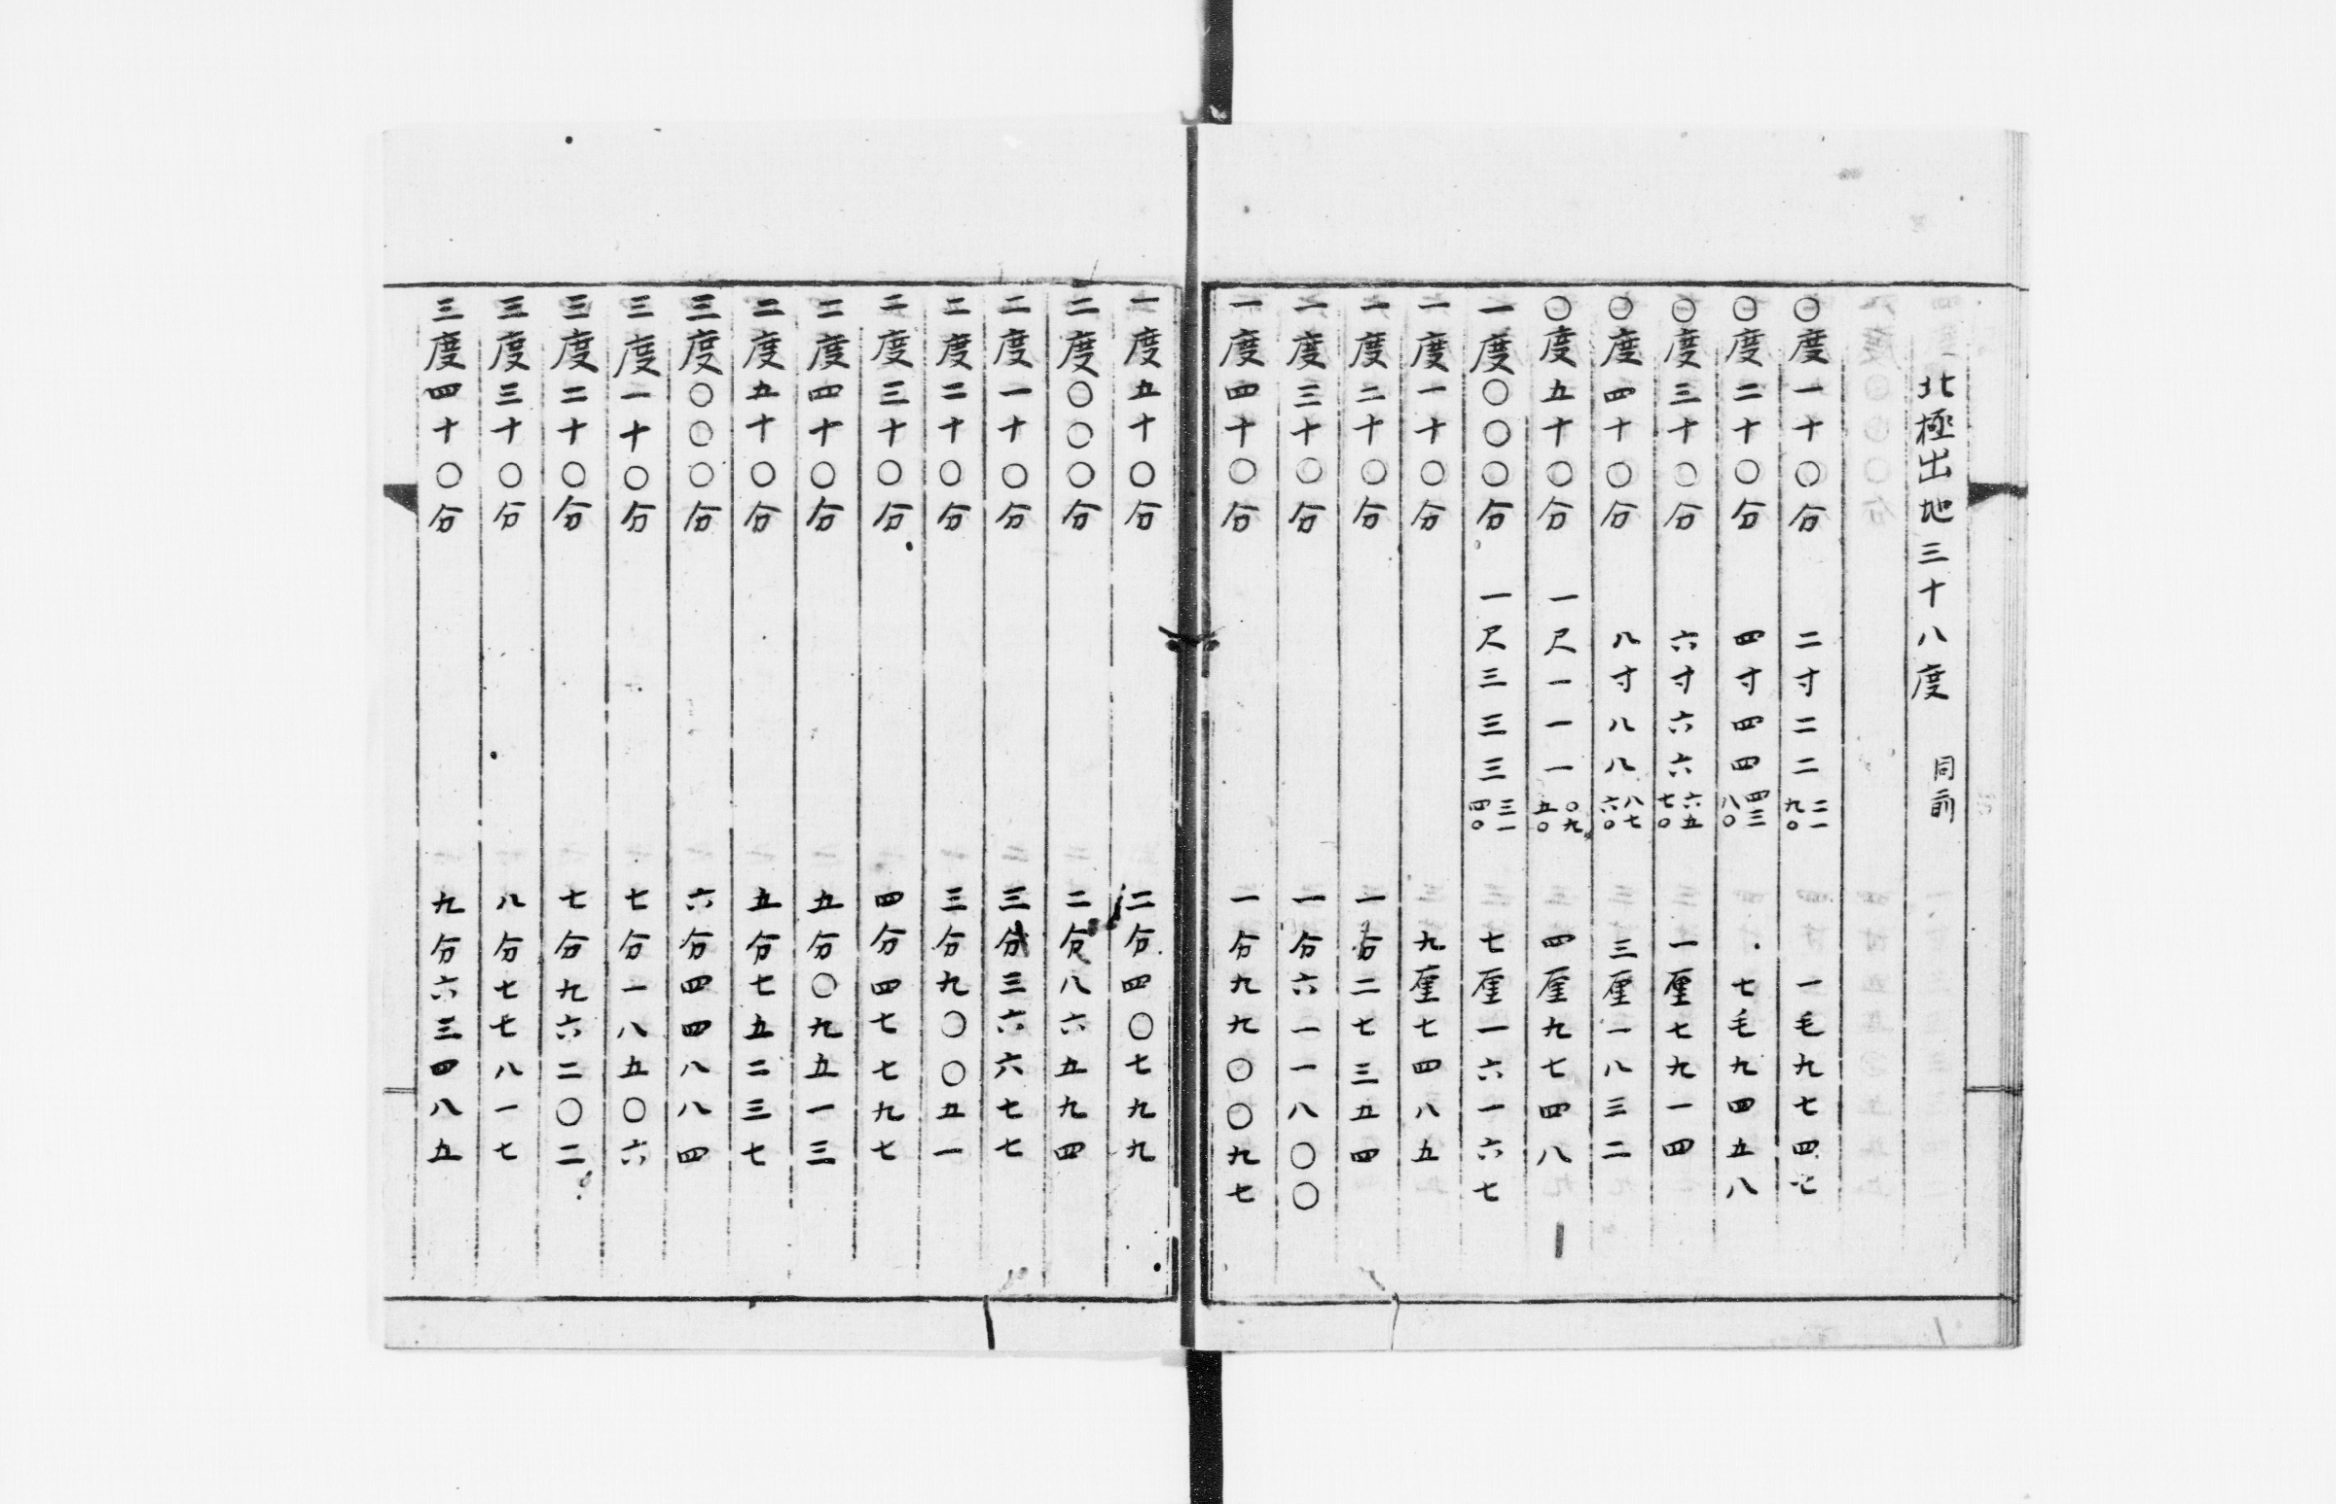 北極出地三十八度 同前
〇度一十〇分 二寸二二二一九〇 一毛九七四七
〇度二十〇分 四寸四四四三八〇 七毛九四五八
〇度三十〇分 六寸六六六五七〇 一厘七九一四
〇度四十〇分 八寸八八八七六〇 三厘一八三二
〇度五十〇分 一尺一一一〇九五〇 四厘九七四八
一度〇〇〇分 一尺三三三三一四〇 七厘一六一六七
一度一十〇分 九厘七四八五
一度二十〇分 一分二七三五四
一度三十〇分 一分六一一八〇〇
一度四十〇分 一分九九〇〇九七
一度五十〇分 二分四〇七九九
二度〇〇〇分 二分八六五九四
二度一十〇分 三分三六六七七
二度二十〇分 三分九〇〇五一
二度三十〇分 四分四七七九七
二度四十〇分 五分〇九五一三
二度五十〇分 五分七五二三七
三度〇〇〇分 六分四四八八四
三度一十〇分 七分一八五〇六
三度二十〇分 七分九六二〇二
三度三十〇分 八分七七八一七
三度四十〇分 九分六三四八五